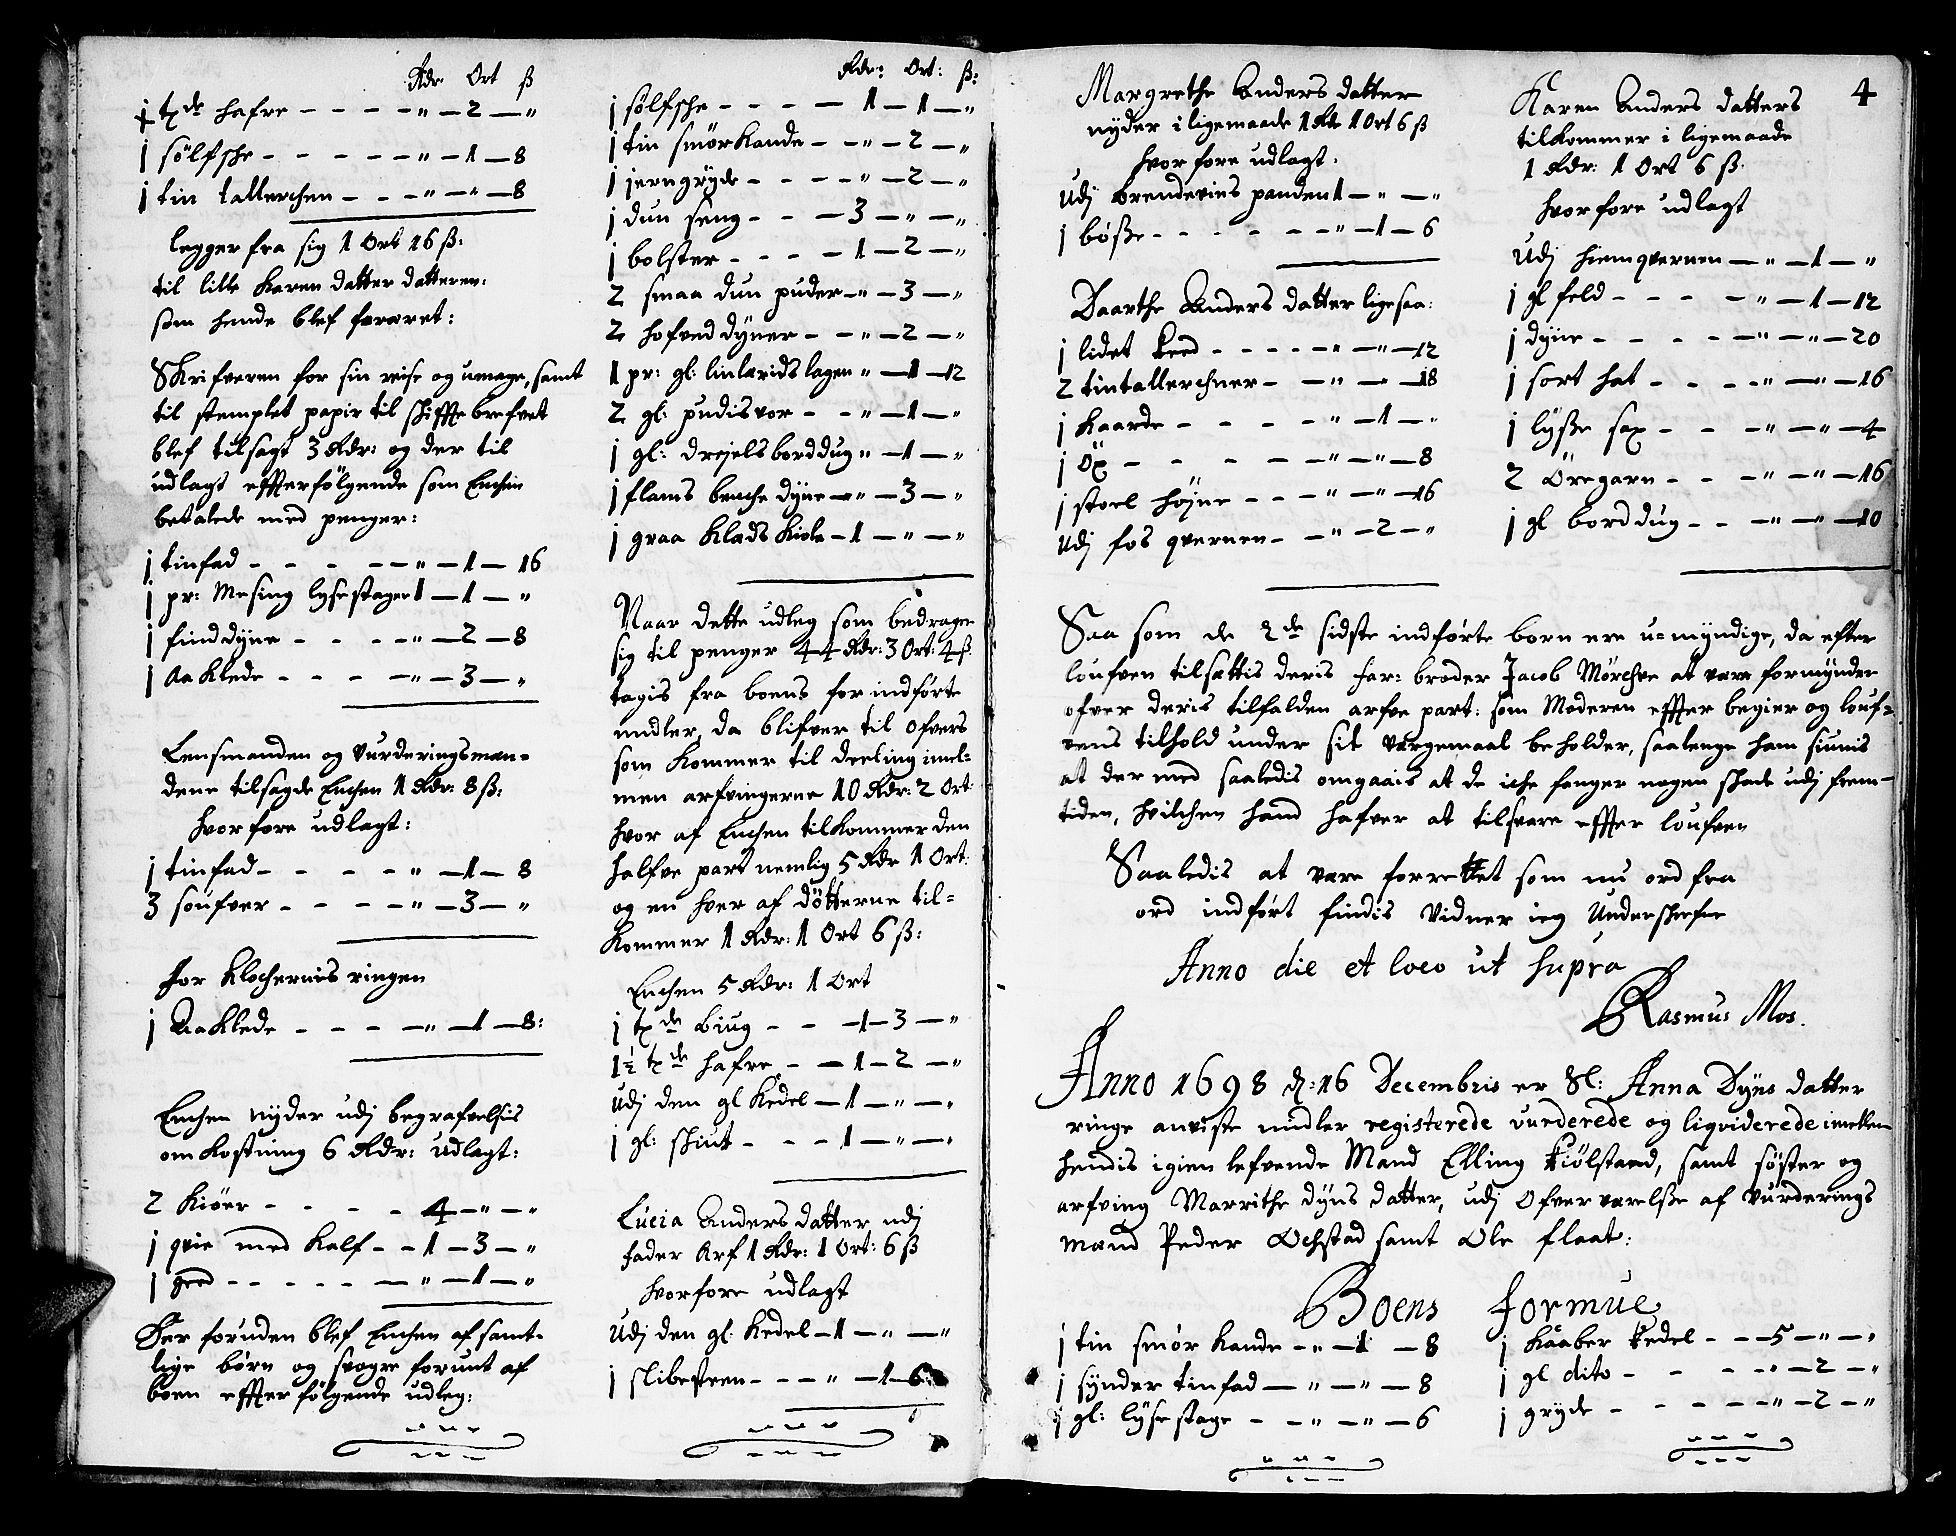 Rdr Ort ß
1 tøde hafre - - - - " - 2 - "
1 sölfske - - - - - " - 1 - 8
1 tin tallerchen - - - " - " - 8
legger fra sig 1 Ort 16 ß:
til lille Karen datter datteren:
som hende blef foræret:
Skrifveren for sin reise og umage, samt
til stemplet papir til skiffte brefvet
blef tilsagt 3 Rdr: og der til
udlagt effterfölgende som Enchen
betalede med penger:
1 tinfad - - - - - " - 1 - 16
1 pr: Mesing lysestager 1 - 1 - "
1 finddyne - - - - " - 2 - 8
1 Aaklede - - - - " - 3 - "
Lensmanden og vurderingsmen-
dene tilsagde Enchen 1 Rdr: 8 ß:
hvorfore udlagt:
1 tinfad - - - - - " - 1 - 8
3 soufver - - - - " - 3 - "
for Klochernis ringen
1 Aaklede - - - - " - 1 - 8:
Enchen nyder udj begrafvelsis
omkostning 6 Rdr: udlagt:
2 Kiöer - - - - - 4 - " - "
1 qvie med Kalf - - 1 - 3 - "
1 geed - - - - - - " - 1 - "
Her foruden blef Enchen af samt-
lige börn og svogre forunt af
boen effter fölgende udleg:
Rdr: Ort: ß:
1 sölfske - - - - 1 - 1 - "
1 tin smör Kande - - " - 2 - "
1 jerngryde - - - - " - 2 - "
1 dun seng - - - 3 - " - "
1 bolster - - - - 1 - 2 - "
2 smaa dun puder - " - 3 - "
2 hofved dyner - - " - 2 - "
1 pr: gl: linlærids lagen " - 1 - 12
2 gl: pudisvor - - " - 1 - "
1 gl: drejels borddug " - 1 - "
1 flams benche dyne - " - 3 - "
1 graa Klæds Kiole - 1 - " - "
Naar dette udleg som bedrager
sig til penger 44 Rdr: 3 Ort: 4 ß
tagis fra boens for indförte
midler, da blifver til ofvers
som Kommer til deeling imel-
men arfvingerne 10 Rdr: 2 Ort:
hvor af Enchen tilkommer den
halfve part nemlig 5 Rdr 1 Ort:
og en hver af dötterne til-
Kommer 1 Rdr: 1 Ort 6 ß:
Enchen 5 Rdr: 1 Ort
1 tøde biug - - - 1 - 3 - "
1½ tøde hafre - - 1 - 2 - "
Udj den gl Kedel - 1 - " - "
1 gl: skiut - - - 1 - " - "
Lucia Anders datter udj
fader Arf 1 Rdr: 1 Ort: 6 ß
hvorfore udlagt
Udj den gl: Kedel - 1 - " - "
1 slibesteen - - - " - 1 - 6
Margrethe Anders datter
nyder i ligemaade 1 Rdr 1 Ort 6 ß
hvorfore udlagt:
Udj brendeviins panden 1 - " - "
1 bösse - - - - - " - 1 - 6
Daarthe Anders datter ligesaa:
1 lidet - - - - - " - " - 12
2 tintallerchner - - " - " - 18
1 Kaarde - - - - " - 1 - "
1 Öx - - - - - " - " - 8
1 stoel höjne - - - " - " - 16
Udj fos qvernen - - " - 2 - "
4
Karen Anders datters
tilkommer i ligemaade
1 Rdr: 1 Ort 6 ß.
hvorfore udlagt
Udj hiemqvernen - " - 1 - "
1 gl feld - - - - " - 1 - 12
1 dyne - - - - " - " - 20
1 sort hat - - - " - " - 16
1 lysse sax - - - " - " - 4
2 Öregarn - - - " - " - 16
1 gl bord dug - - " - " - 10
Saa som de 2de sidste indförte born ere u-myndige, da efter
loufven tilsættis deris far: broder Jacob Mörchve at være formynder
ofver deris tilfalden arfve part: som Moderen effter begier og louf-
vens tilhold under sit værgemaal beholder, saalenge ham siunis
at der med saaledis omgaais at de iche fanger nogen skade udj frem-
tiden, hvilchen hand hafver at tilsvare effter loufven
Saaledis at være forrettet som nu ord fra
ord indfört findis Vidner ieg Underskrefne
Anno die et loco ut supra
Rasmus Mos.
Anno 1698 d: 16 Decembris er Sl: Anna Dyns datter
ringe anviste midler registerede vurderede og liqviderede imellem
hendis igien lefvende Mand Elling Kiölstaed, samt söster og
arfving Marrithe dyns datter, udj ofverværelsse af vurderings
mænd Peder Ochstad samt Ole flaat:
Boens formue
1 tin smör Kande - " - 1 - 8
1 synder tinfad - " - " - 8
1 gl: lyse stage - - " - " - 6
1 Kaaber Kedel - - 5 - " - "
1 gl dito - - - - " - 2 - "
1 gryde - - - - - " - 2 - "